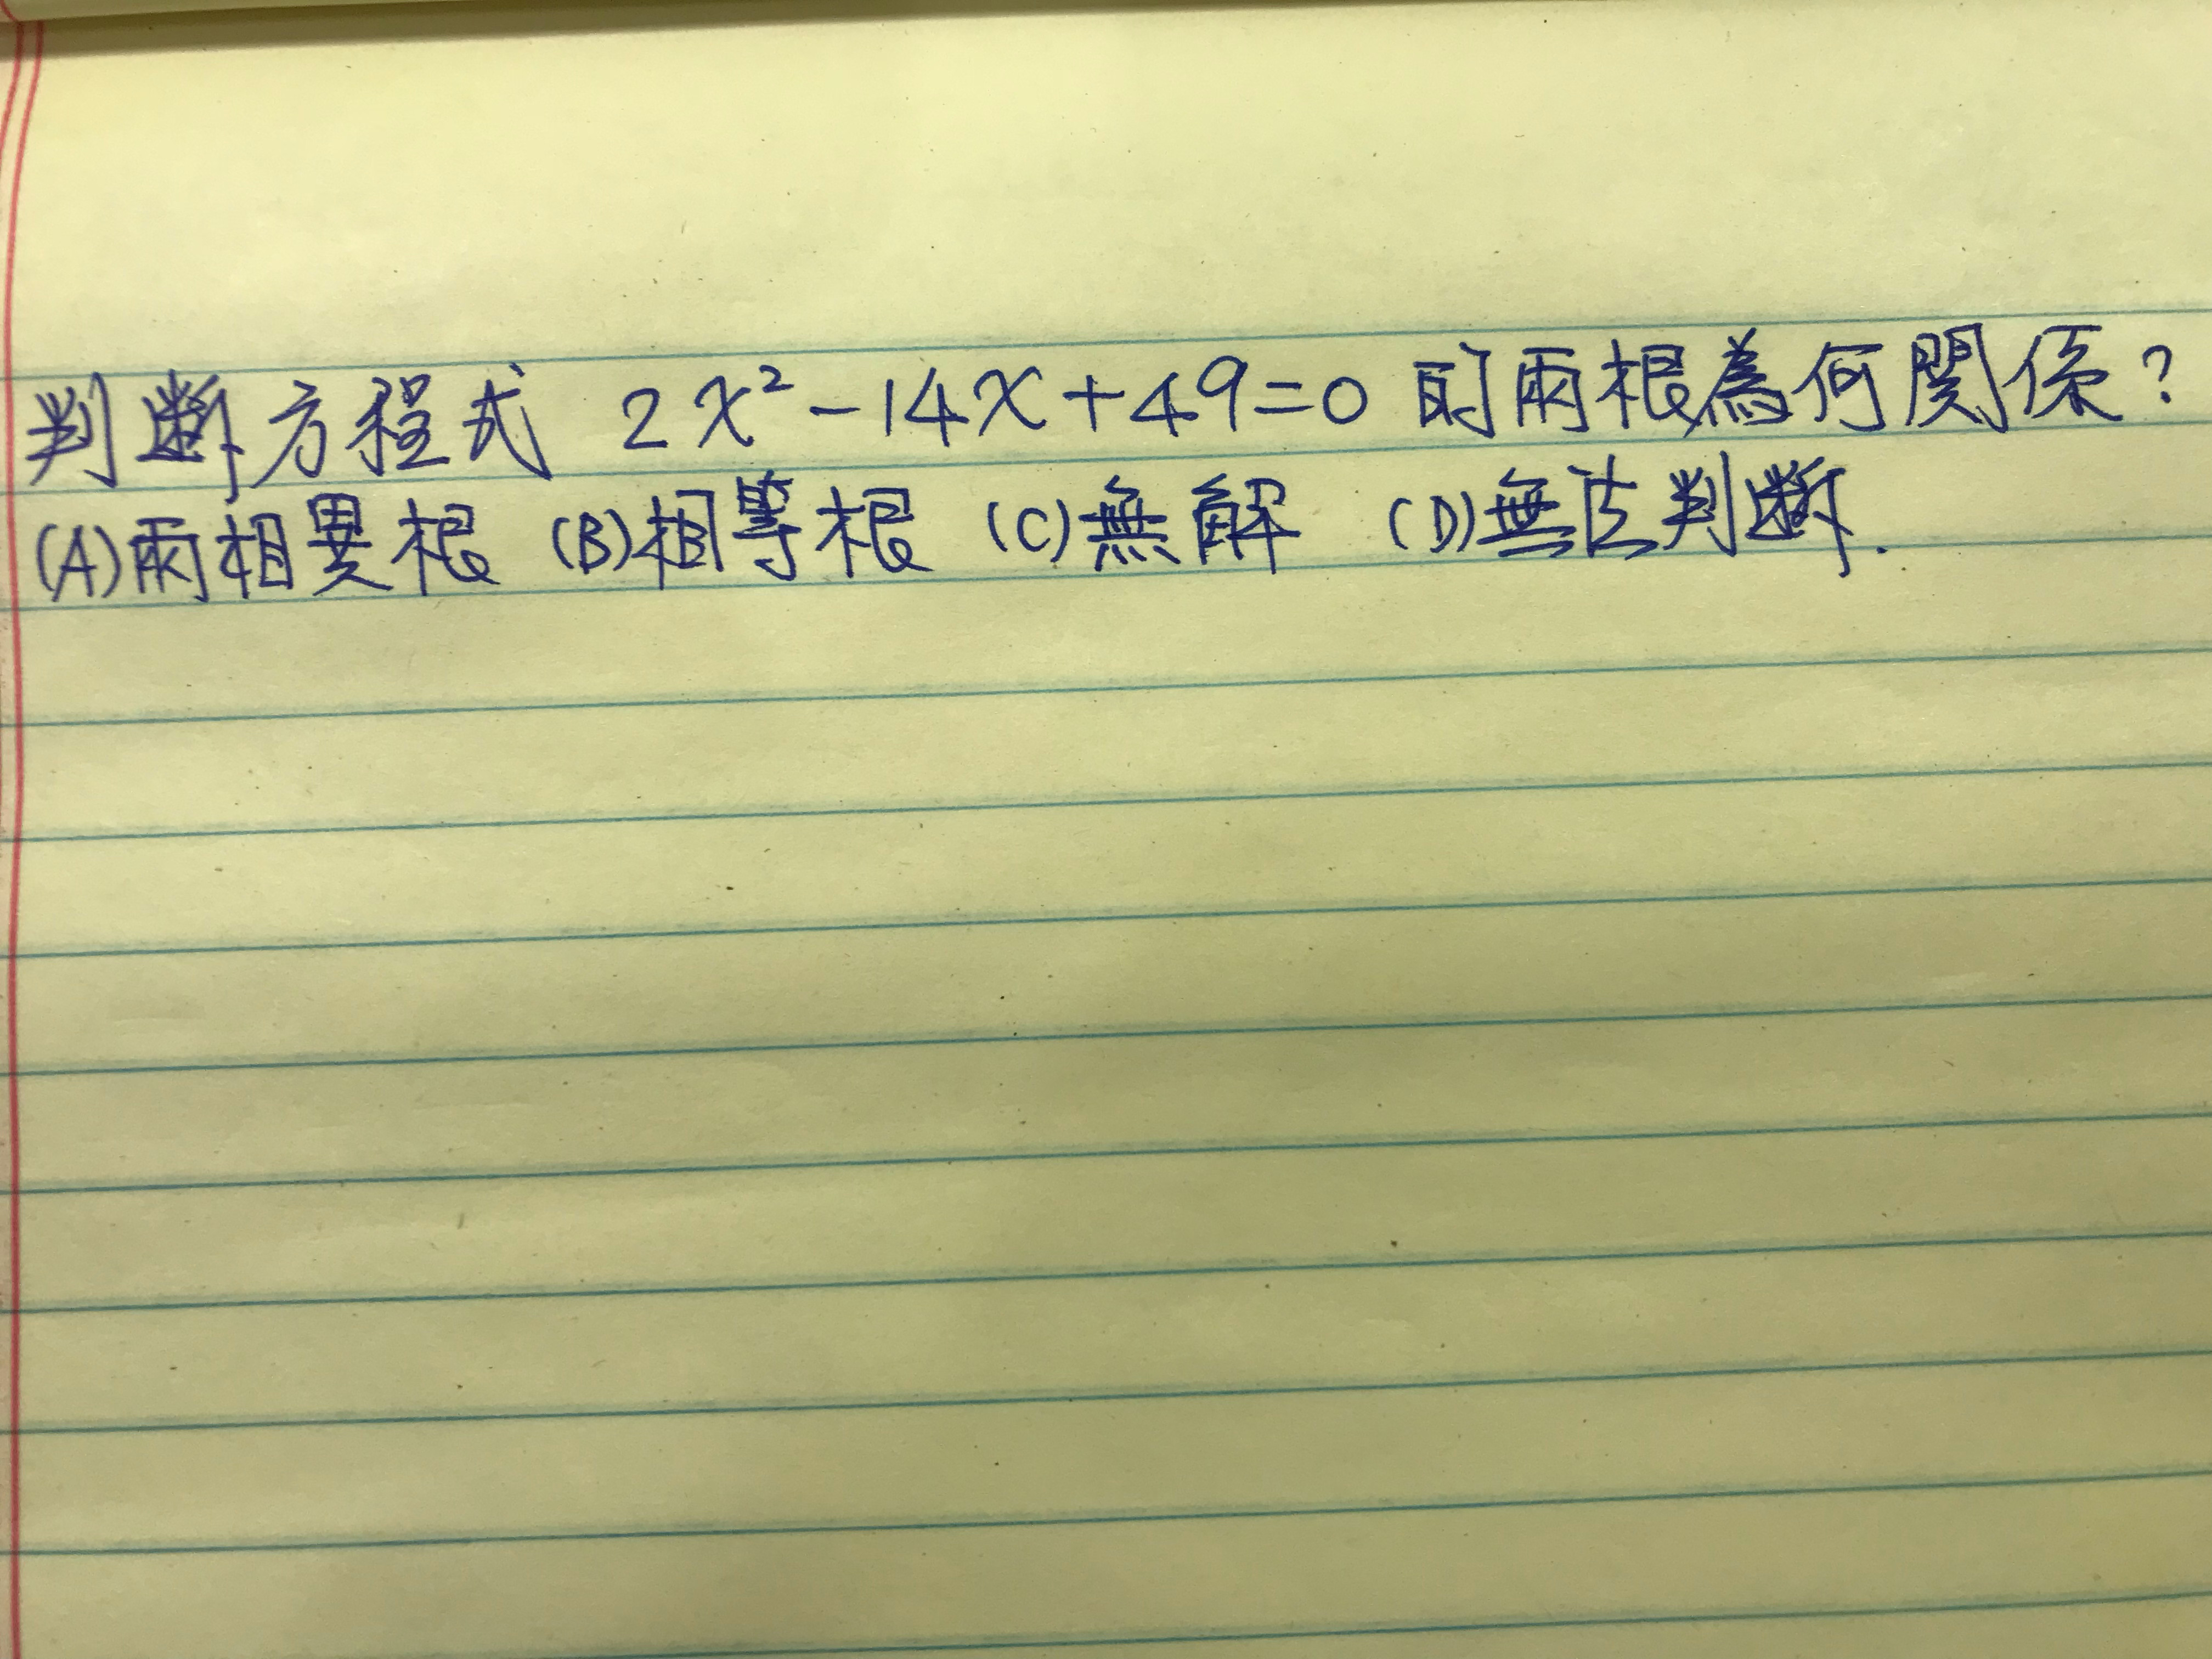 判斷方程式 2x²-14x+49=0 的兩根為何關係？
(A)兩相異根 (B)相等根 (C)無解 (D)無法判斷.